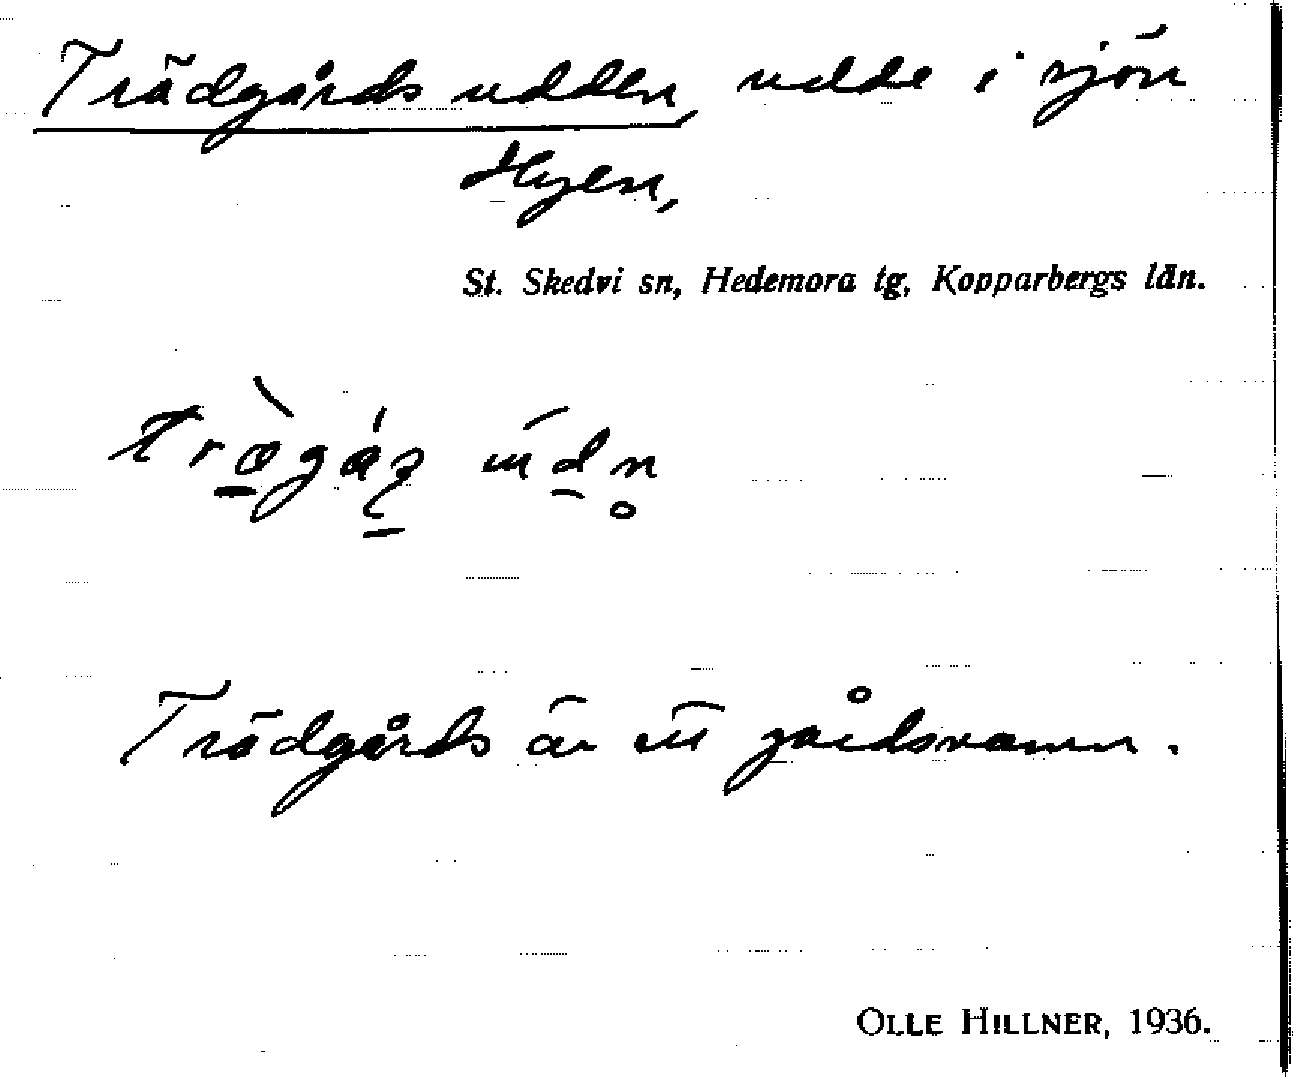 Trädgårds udden, udde i sjön
Hyen,
St. Skedvi sn, Hedemora tg, Kopparbergs län.
Trädgårds är ett gårdsnamn.
OLLE HILLNER, 1936.